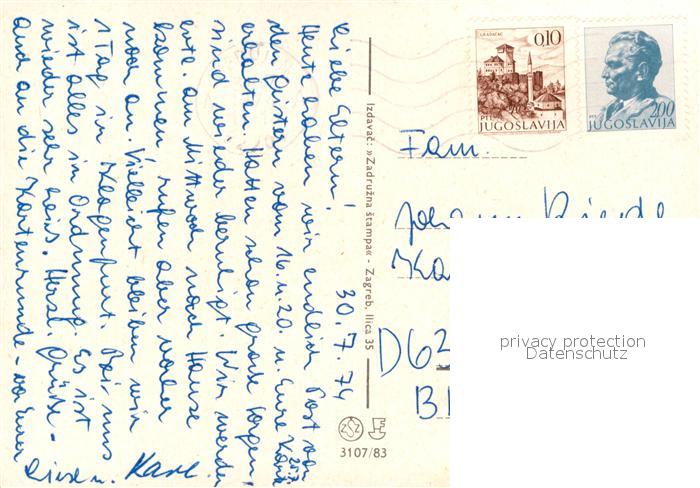 30.7.74
Liebe Eltern!
Heute haben wir endlich Post von
den Gisten vom 16. u. 20. u. Eure Karte 25.7.
erhalten. Hatten schon große Sorgen,
sind wieder beruhigt. Wir werden
evtl. am Mittwoch nach Hause
kommen rufen aber vorher
noch an. Vielleicht bleiben wir
1 Tag in Klagenfurt. Bei uns
ist alles in Ordnung. Es ist
wieder sehr heiss. Herzl. Grüße -
auch an die Kartenrunde - von Eurer
u. Karl
Izdavač: »Zadružna štampa« - Zagreb, Ilica 35
3107/83
GRADAČAC
0.10
PTT
JUGOSLAVIJA
PTT
2.00
JUGOSLAVIJA
Fam.
Johann
Ka
D62
B
privacy protection
Datenschutz